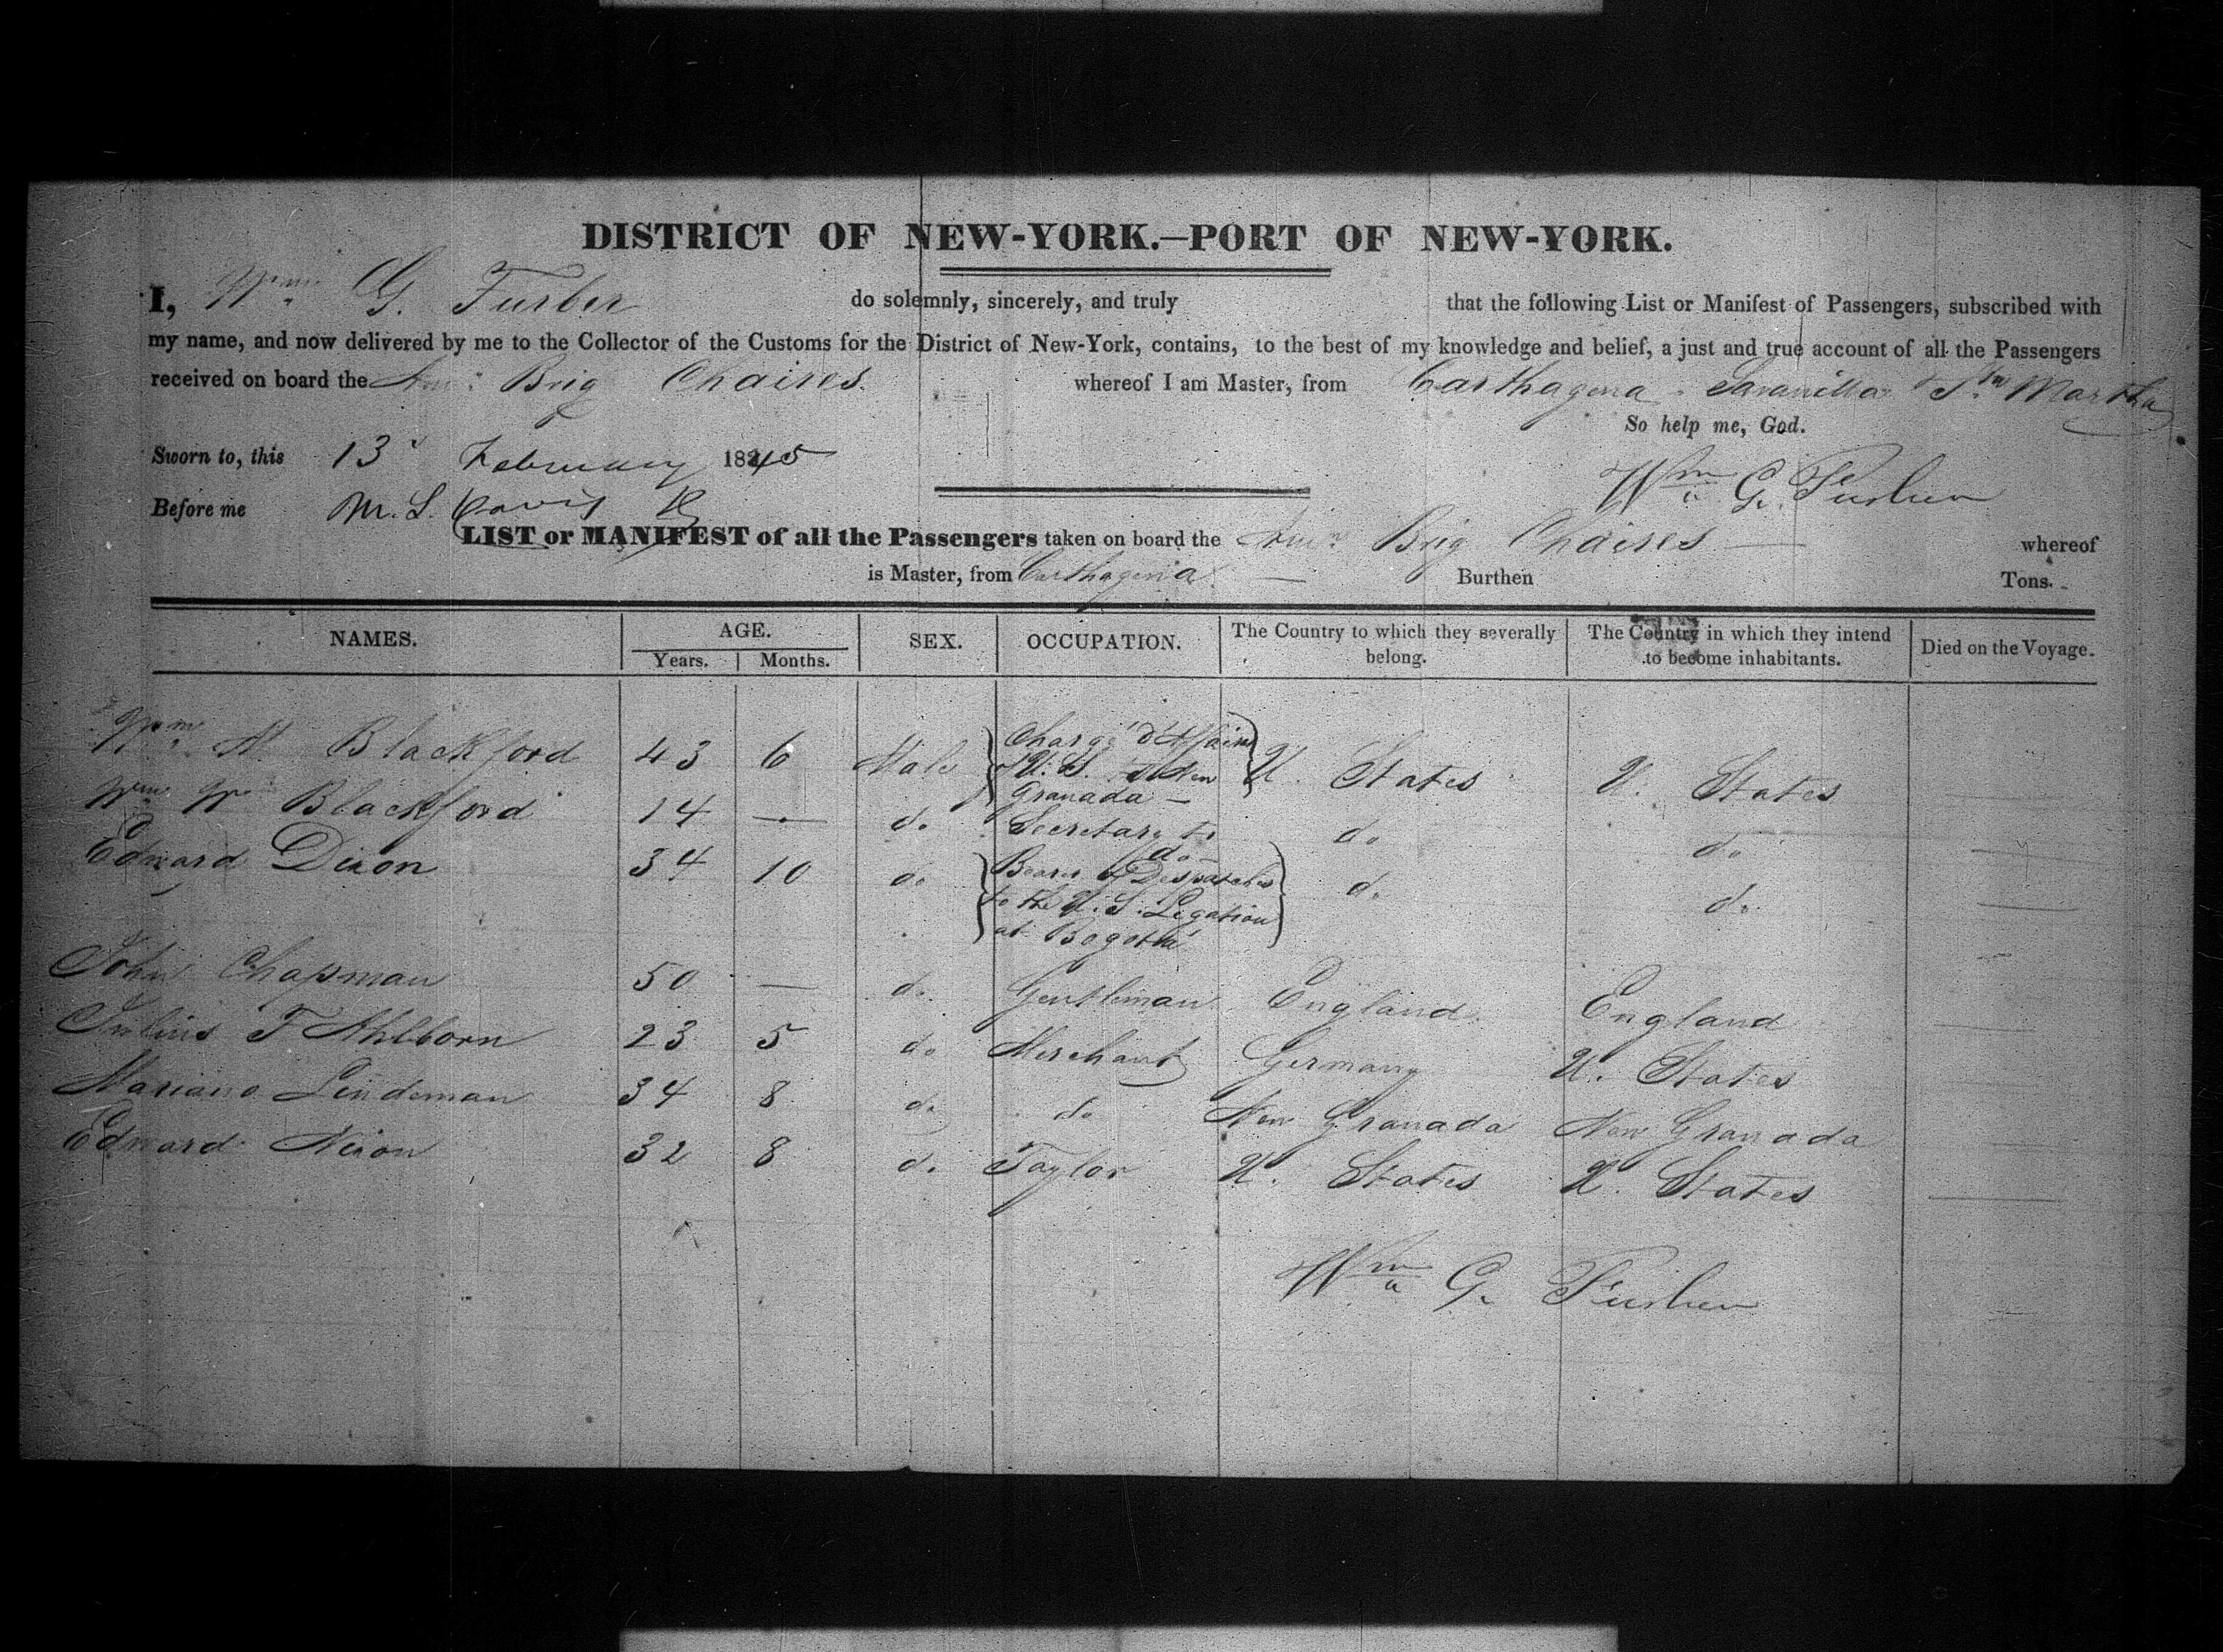 DISTRICT OF NEW-YORK.—PORT OF NEW-YORK.
I, Wm G. Furber do solemnly, sincerely, and truly that the following List or Manifest of Passengers, subscribed with
my name, and now delivered by me to the Collector of the Customs for the District of New-York, contains, to the best of my knowledge and belief, a just and true account of all the Passengers
received on board the Am: Brig Chaires. whereof I am Master, from Carthagena Savanilla & Sta Martha
So help me, God.
Sworn to, this 13 February 1845
Wm G. Furber
Before me M. L. Davis
LIST or MANIFEST of all the Passengers taken on board the Amn Brig Chaires whereof
is Master, from Carthagena — Burthen Tons.
NAMES. AGE. SEX. OCCUPATION. The Country to which they severally belong. The Country in which they intend to become inhabitants. Died on the Voyage.
Years. Months.
Wm M. Blackford 43 6 Male Chargé D'Affaires of U. S. to New Granada — U. States U. States
Wm W Blackford 14 — do Secretary to do — do do
Edward Dixon 34 10 do Bearer of Despatches to the U. S. Legation at Bogotá do do
John Chapman 50 — do Gentleman England England
Julius F Ahlborn 23 5 do Merchant Germany U. States
Mariano Lindeman 34 8 do do New Granada New Granada
Edward Nixon 32 8 do Taylor U. States U. States
Wm G. Furber